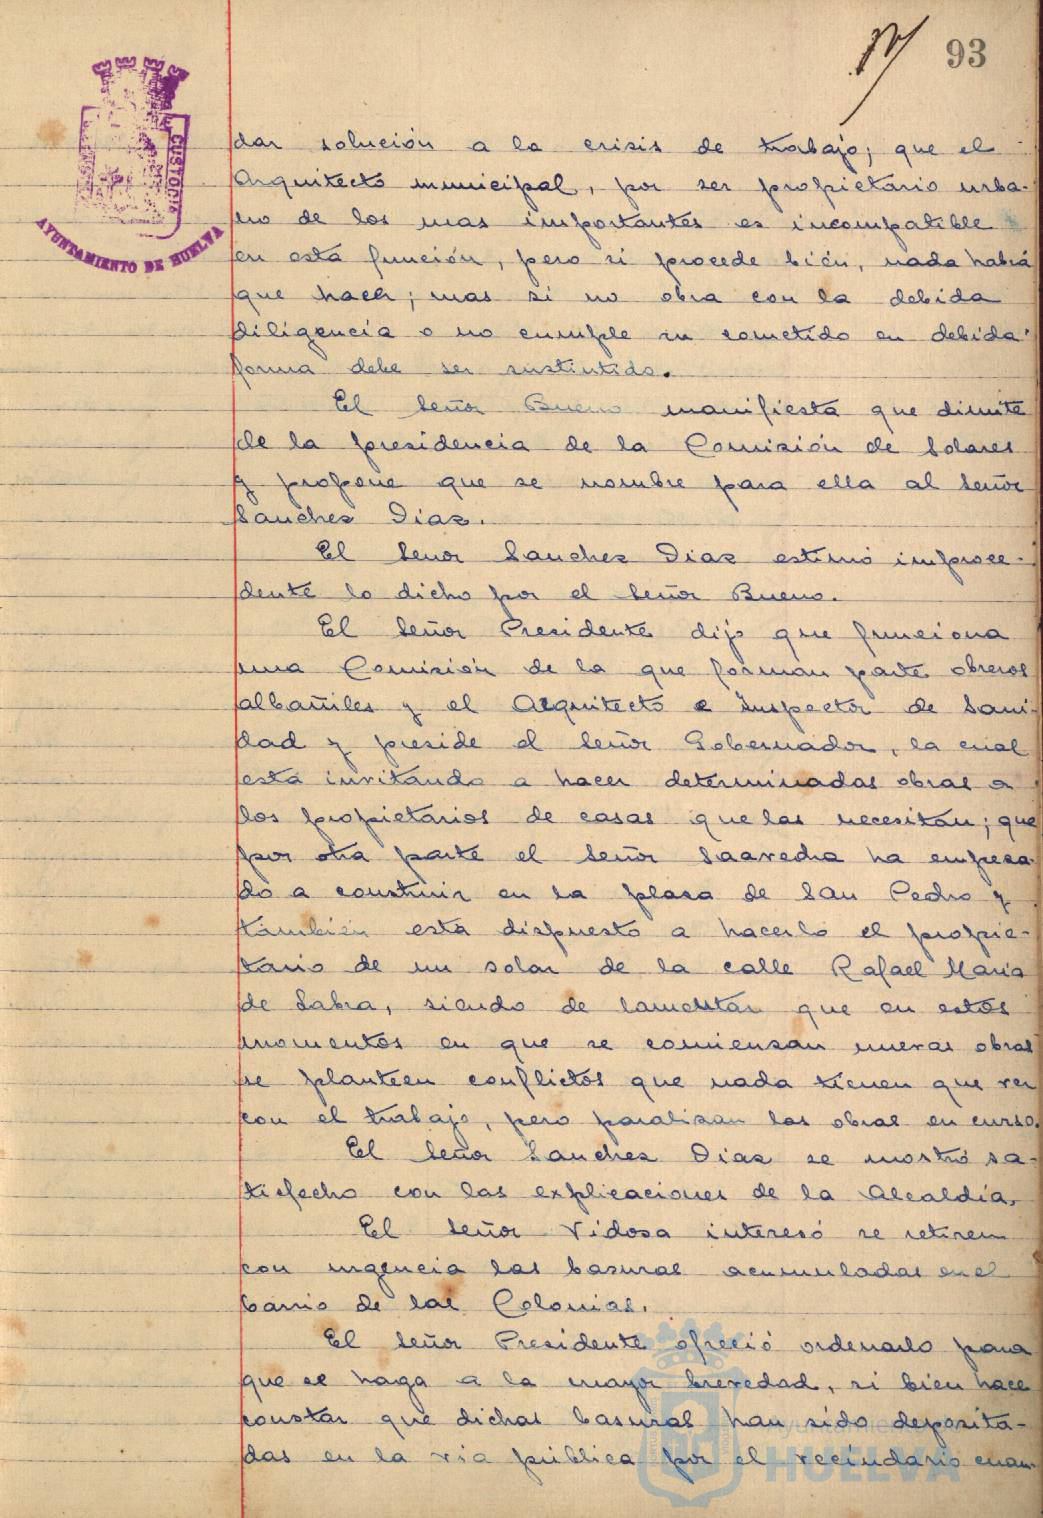 93
CUSTODIA
AYUNTAMIENTO DE HUELVA
dar solución a la crisis de trabajo; que el
Arquitecto municipal, por ser propietario urba-
no de los mas importantes es incompatible
en esta función, pero si procede bién, nada habrá
que hacer; mas si no obra con la debida
diligencia o no cumple su cometido en debida
forma debe ser sustituido.
El Señor Bueno manifiesta que dimite
de la presidencia de la Comisión de Solares
y propone que se nombre para ella al Señor
Sanchez Diaz.
El Señor Sanchez Diaz estimó improce-
dente lo dicho por el Señor Bueno.
El Señor Presidente dijo que funciona
una Comisión de la que forman parte obreros
albañiles y el Arquitecto e Inspector de Sani-
dad y preside el Señor Gobernador, la cual
está invitando a hacer determinadas obras a
los propietarios de casas que las necesitan; que
por otra parte el Señor Saavedra ha empeza-
do a construir en la plaza de San Pedro y
también esta dispuesto a hacerlo el propie-
tario de un solar de la calle Rafael Maria
de Labra, siendo de lamentar que en estos
momentos en que se comienzan nuevas obras
se planteen conflictos que nada tienen que ver
con el trabajo, pero paralizan las obras en curso.
El Señor Sanchez Diaz se mostró sa-
tisfecho con las explicaciones de la Alcaldía.
El Señor Vidosa interesó se retiren
con urgencia las basuras acumuladas en el
barrio de las Colonias.
El Señor Presidente ofreció ordenarlo para
que se haga a la mayor brevedad, si bien hace
constar que dichas basuras han sido deposita-
das en la via pública por el vecindario cuan-
Ayuntamiento de
HUELVA